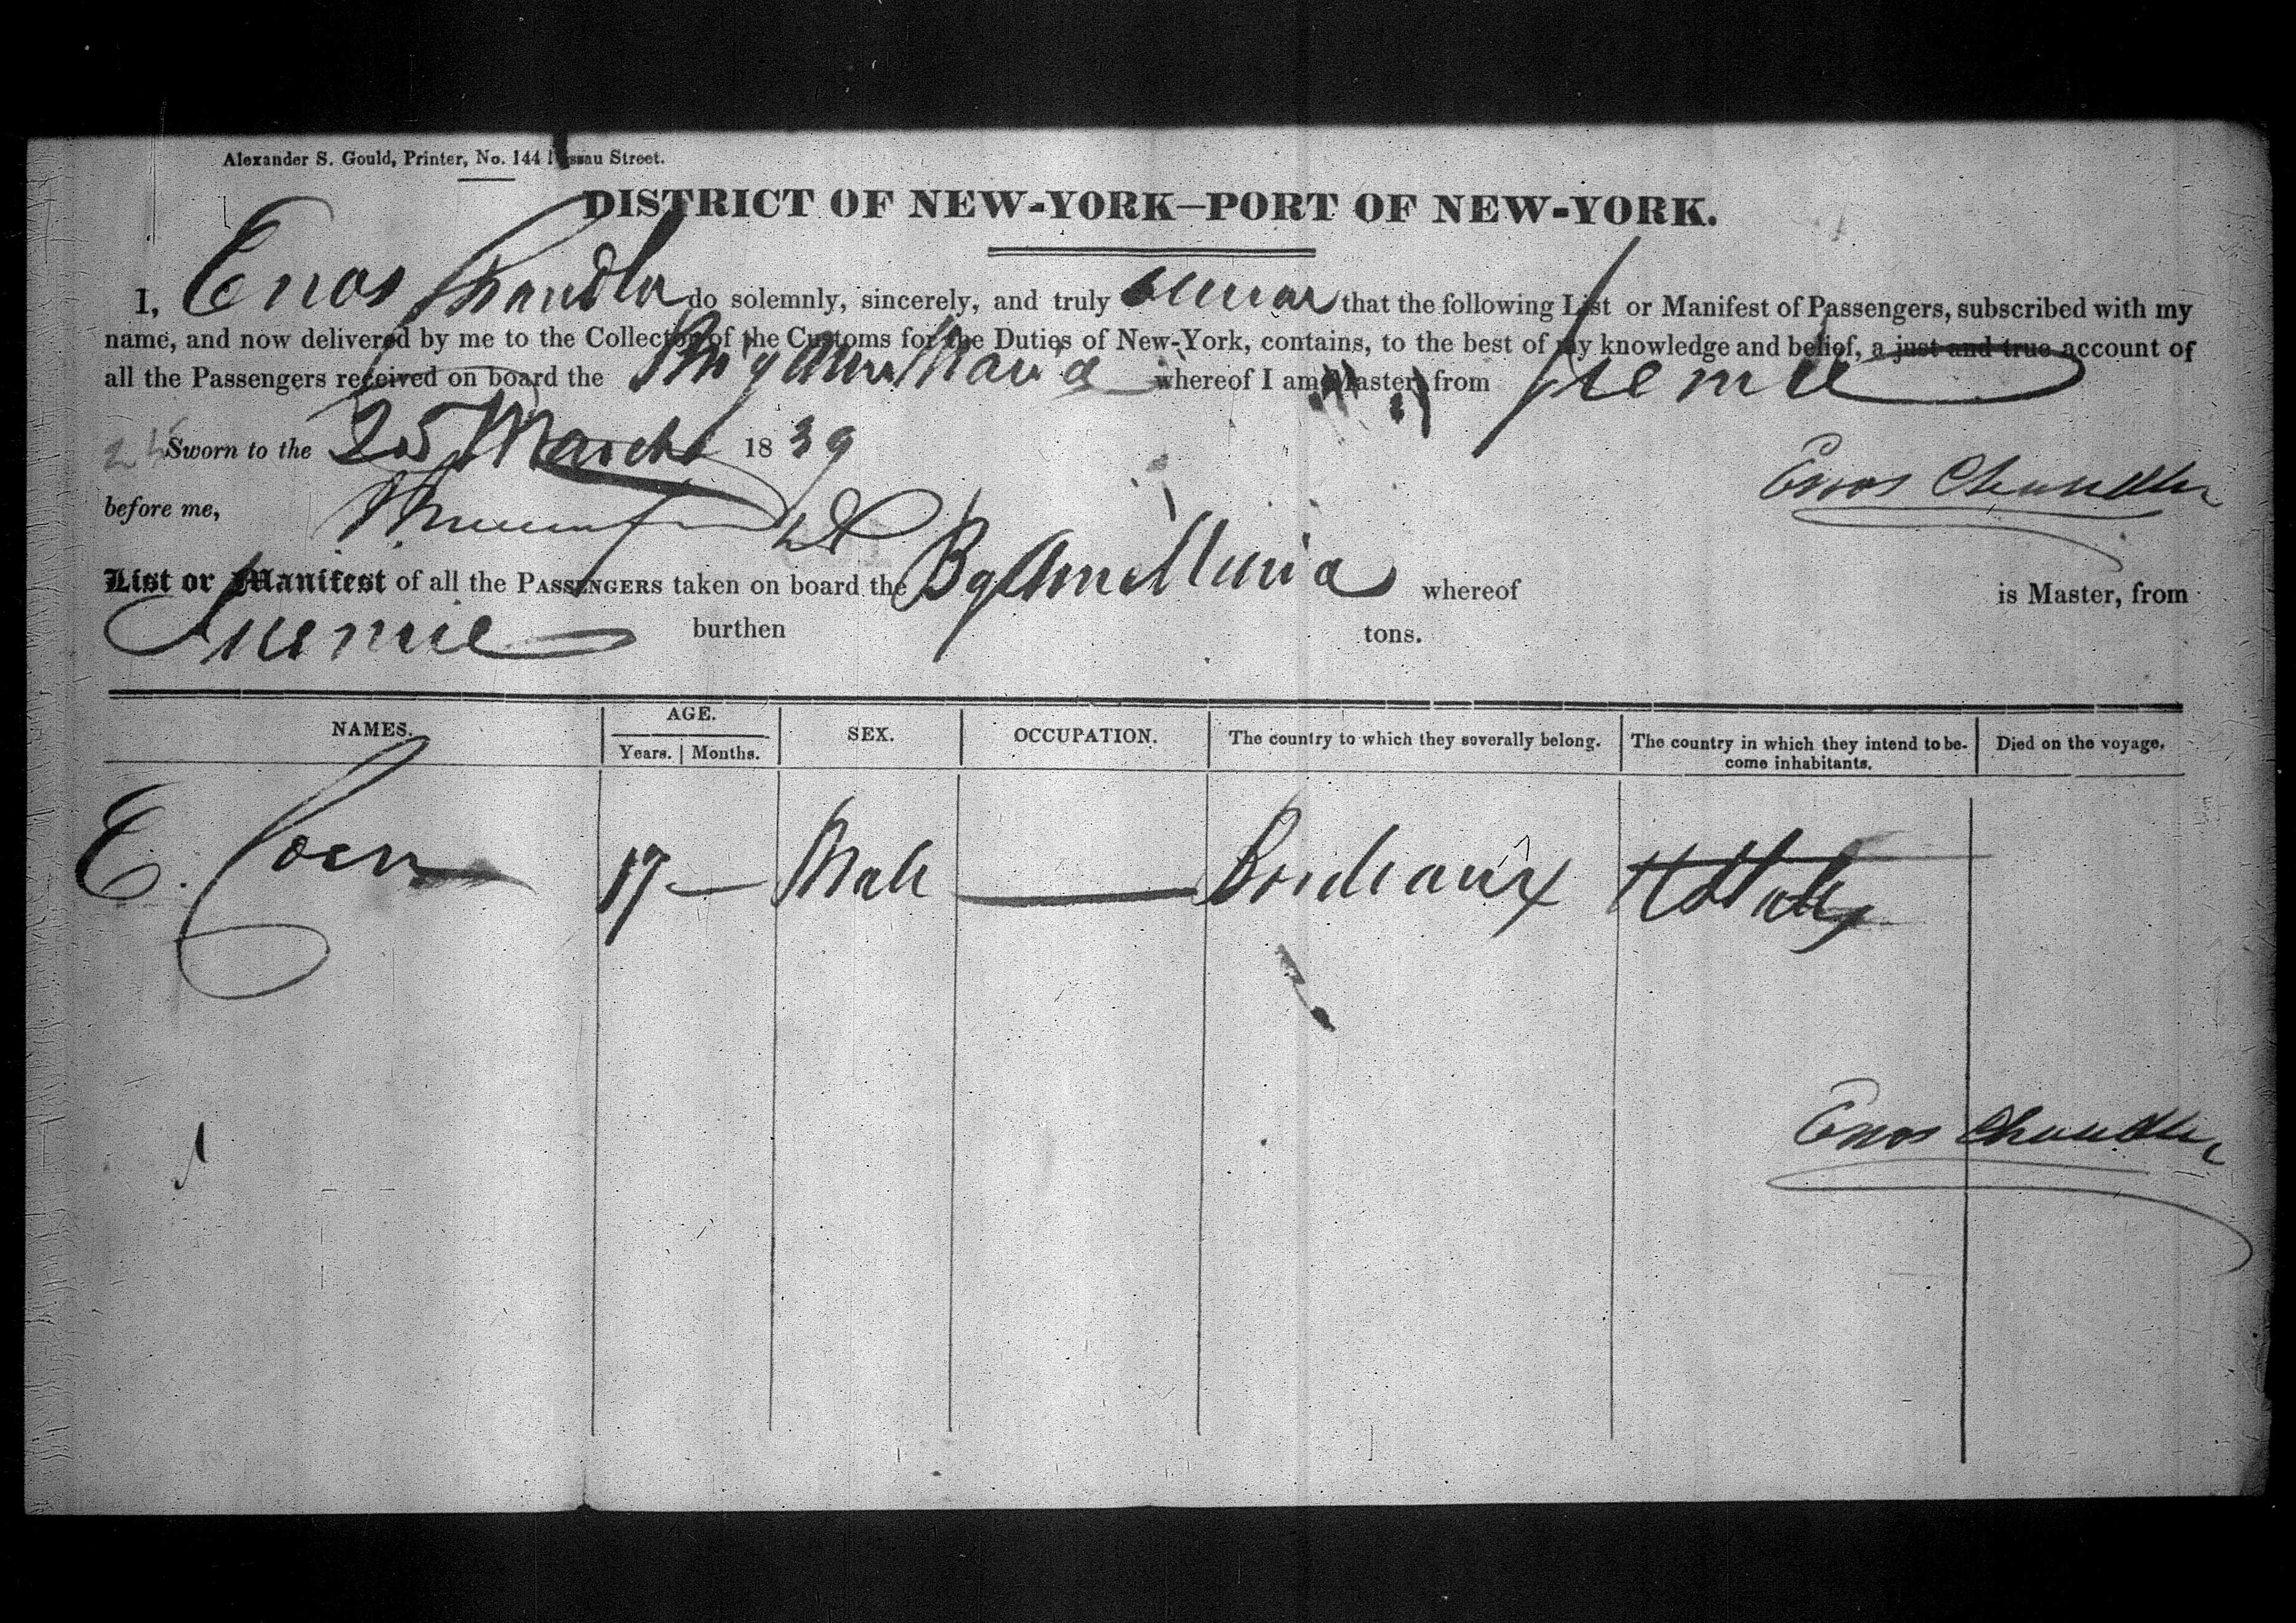 Alexander S. Gould, Printer, No. 144 Nassau Street.
DISTRICT OF NEW-YORK—PORT OF NEW-YORK.
I, Enos Chandler do solemnly, sincerely, and truly swear that the following List or Manifest of Passengers, subscribed with my
name, and now delivered by me to the Collector of the Customs for the Duties of New-York, contains, to the best of my knowledge and belief, a just and true account of
all the Passengers received on board the Brig Ann Maria whereof I am Master, from Jeremie
25 Sworn to the 25 March 1839
Enos Chandler
before me,
List or Manifest of all the PASSENGERS taken on board the Bg Ann Maria whereof is Master, from
Jeremie burthen tons.
NAMES. AGE. SEX. OCCUPATION. The country to which they severally belong. The country in which they intend to be-come inhabitants. Died on the voyage.
Years. Months.
E. Coen 17 — Male — Bordeaux U States
Enos Chandler